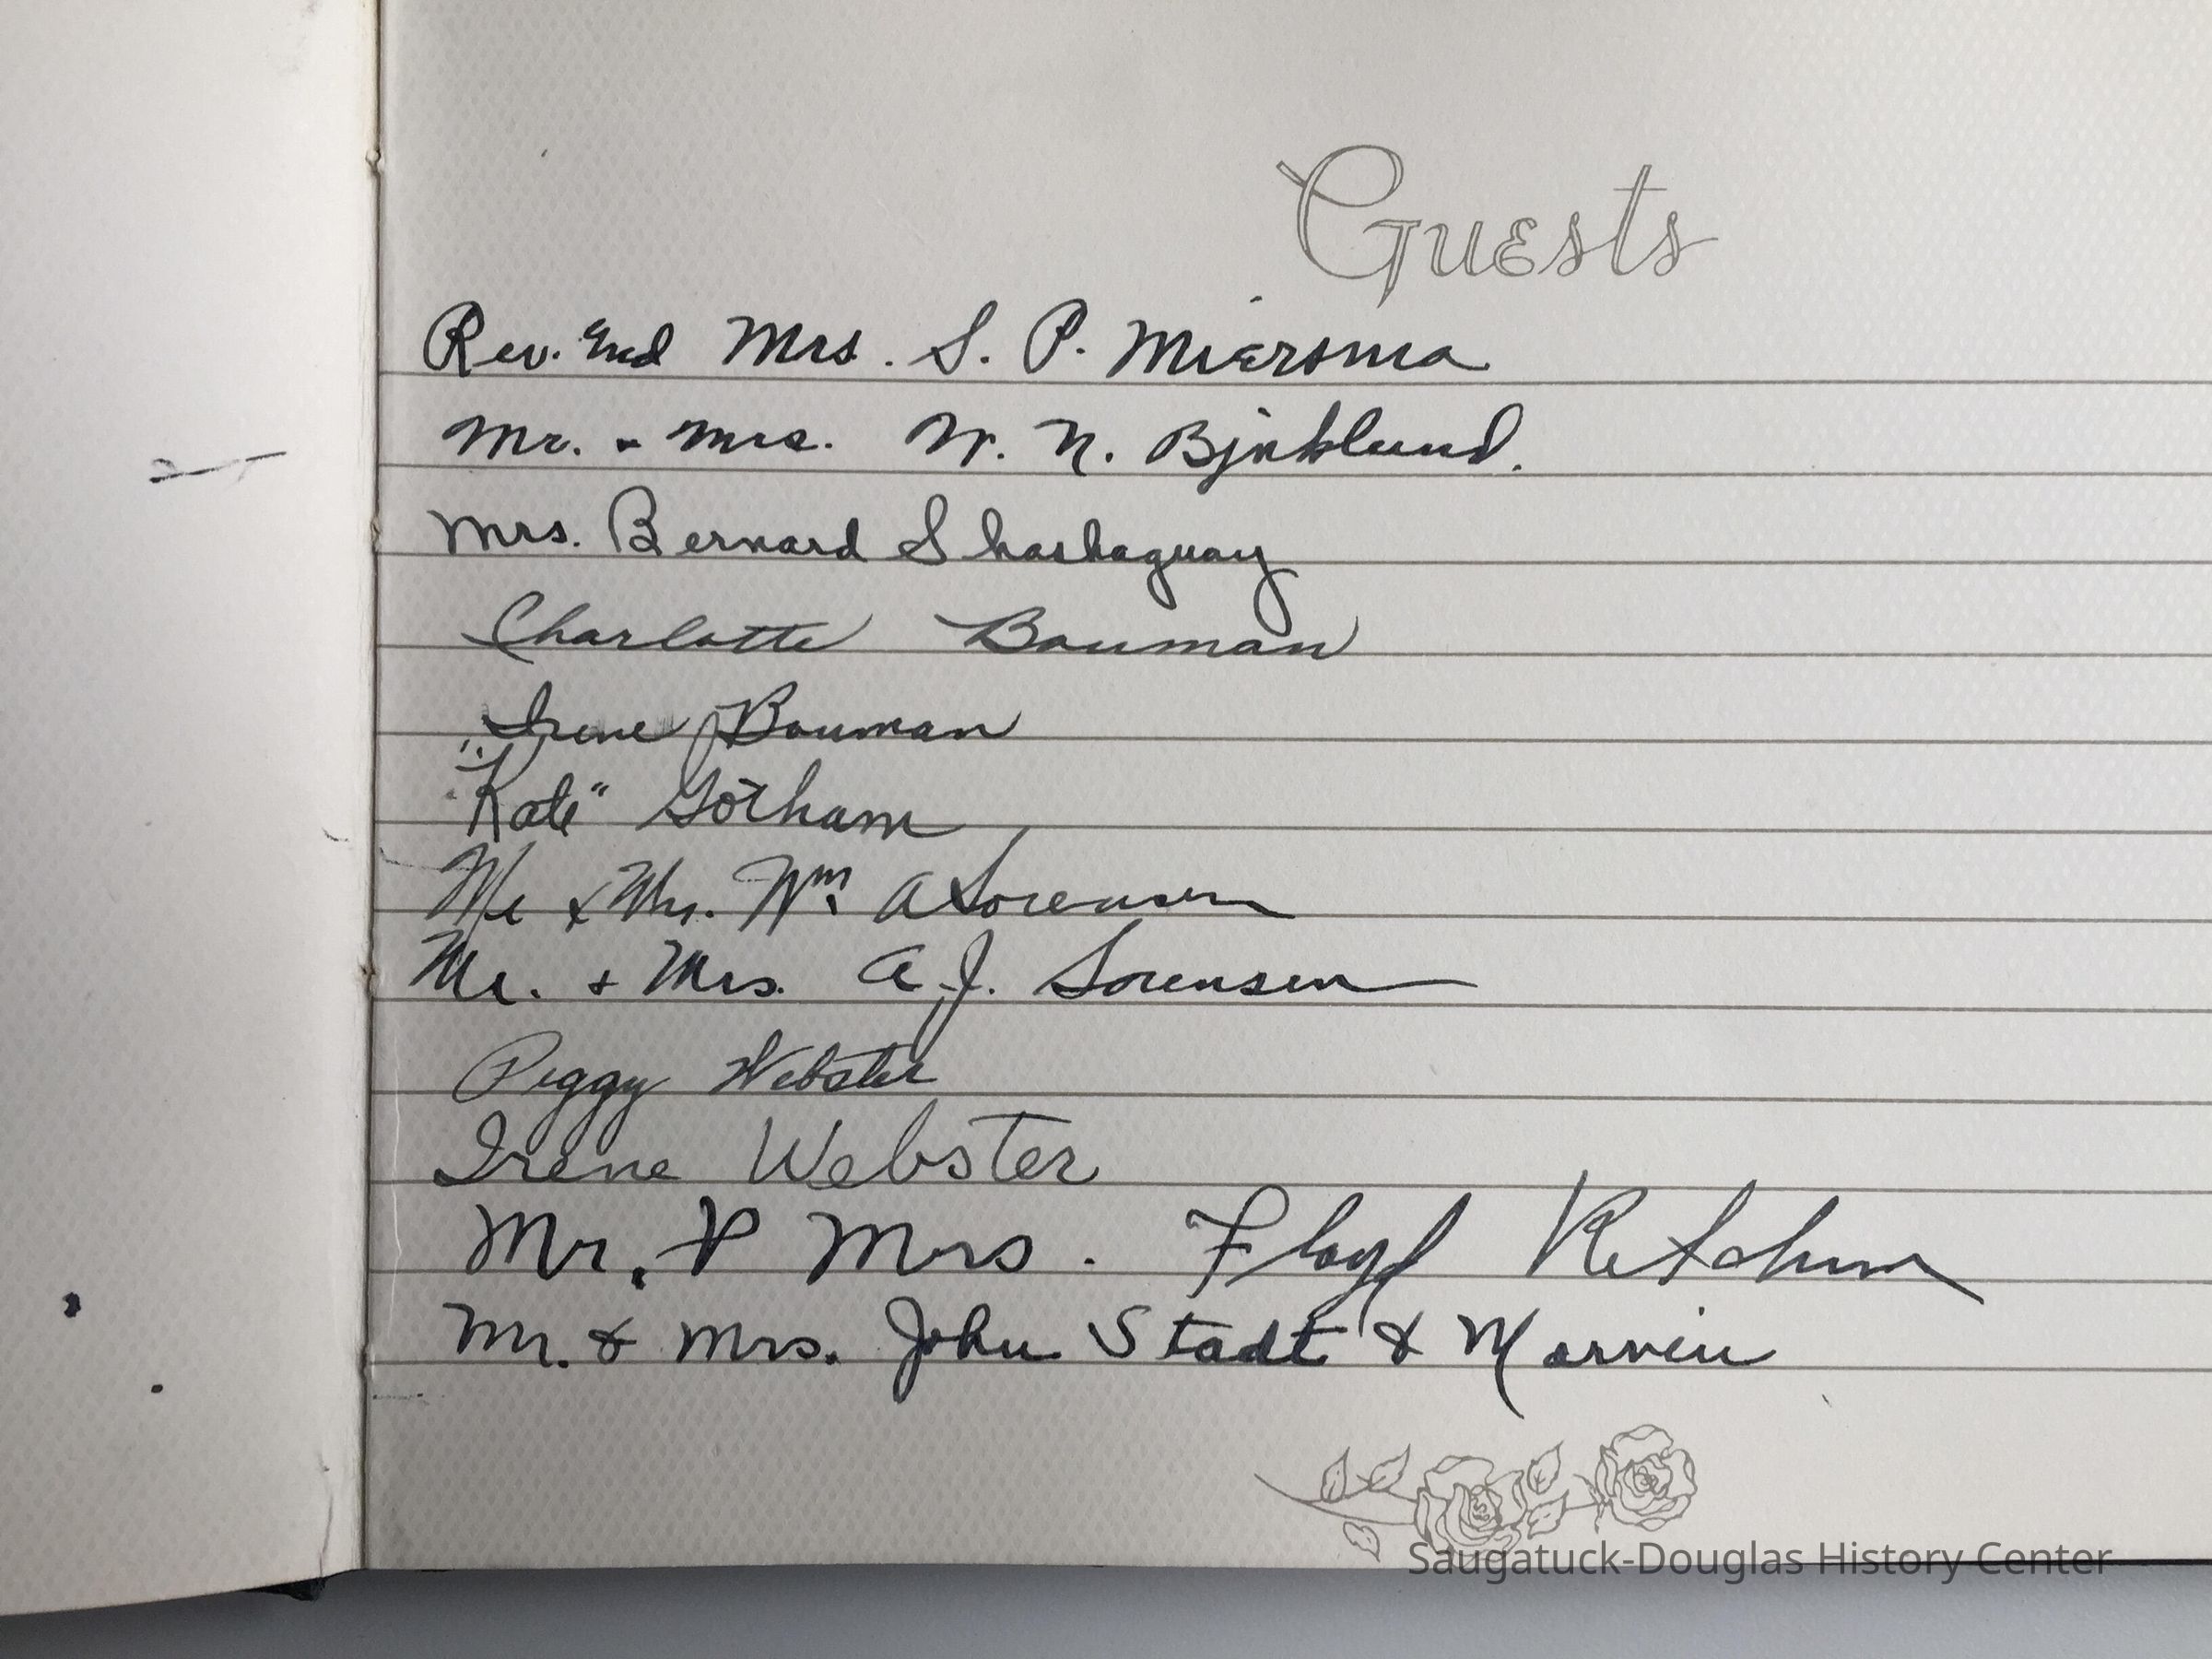 Guests
Rev. and Mrs. S. P. Miersma
Mr. & Mrs. W. N. Bjnklund.
Mrs. Bernard Shashaguay
Charlotte Bouman
Irene Bouman
"Kate" Gotham
Mr & Mrs. Wm. A Sorensen
Mr. + Mrs. A. J. Sorensen
Peggy Webster
Irene Webster
Mr. & Mrs. Floyd Ketchum
Mr. & Mrs. John Stadt & Marvin
Saugatuck-Douglas History Center